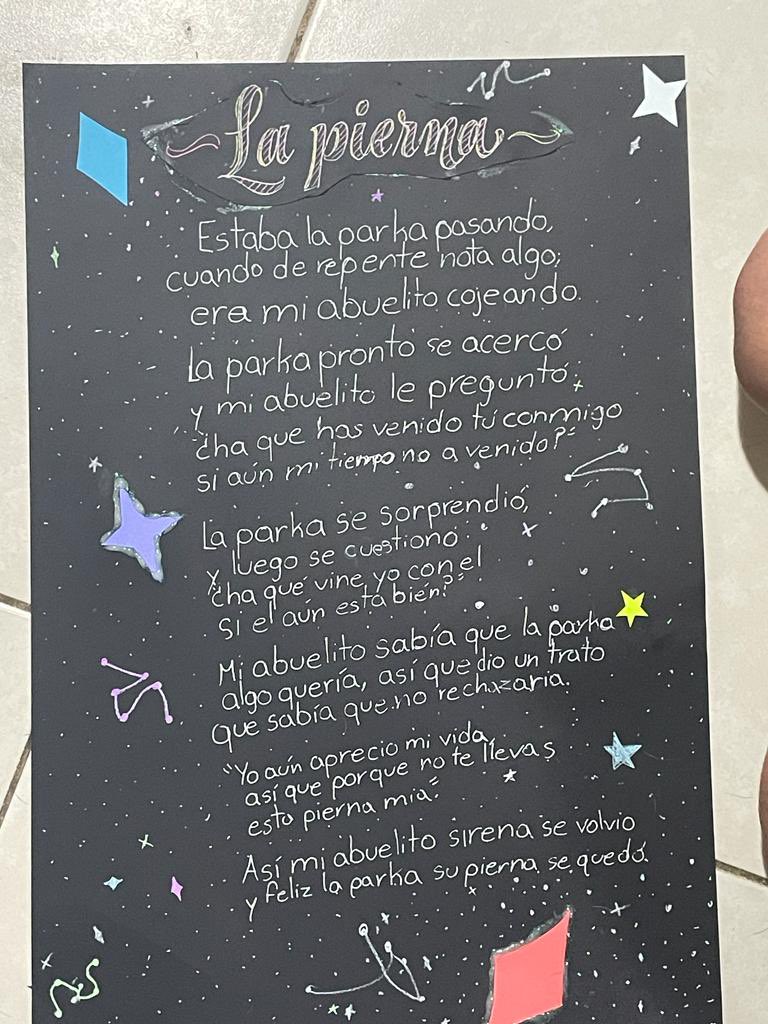 La pierna
Estaba la parka pasando,
cuando de repente nota algo;
era mi abuelito cojeando.
La parka pronto se acercó
y mi abuelito le preguntó;
"¿ha que has venido tú conmigo
si aún mi tiempo no a venido?"
La parka se sorprendió,
y luego se cuestionó
"¿ha qué vine yo con el
si el aún está bien?"
Mi abuelito sabía que la parka
algo quería, así que dio un trato
que sabía que no rechazaria.
"Yo aún aprecio mi vida,
así que porque no te llevas
esta pierna mia."
Así mi abuelito sirena se volvio
y feliz la parka su pierna se quedó.